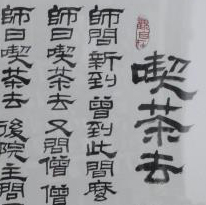 喫茶去
師問新到曾到此間麼
師曰喫茶去又問僧僧
師曰喫茶去後院主問